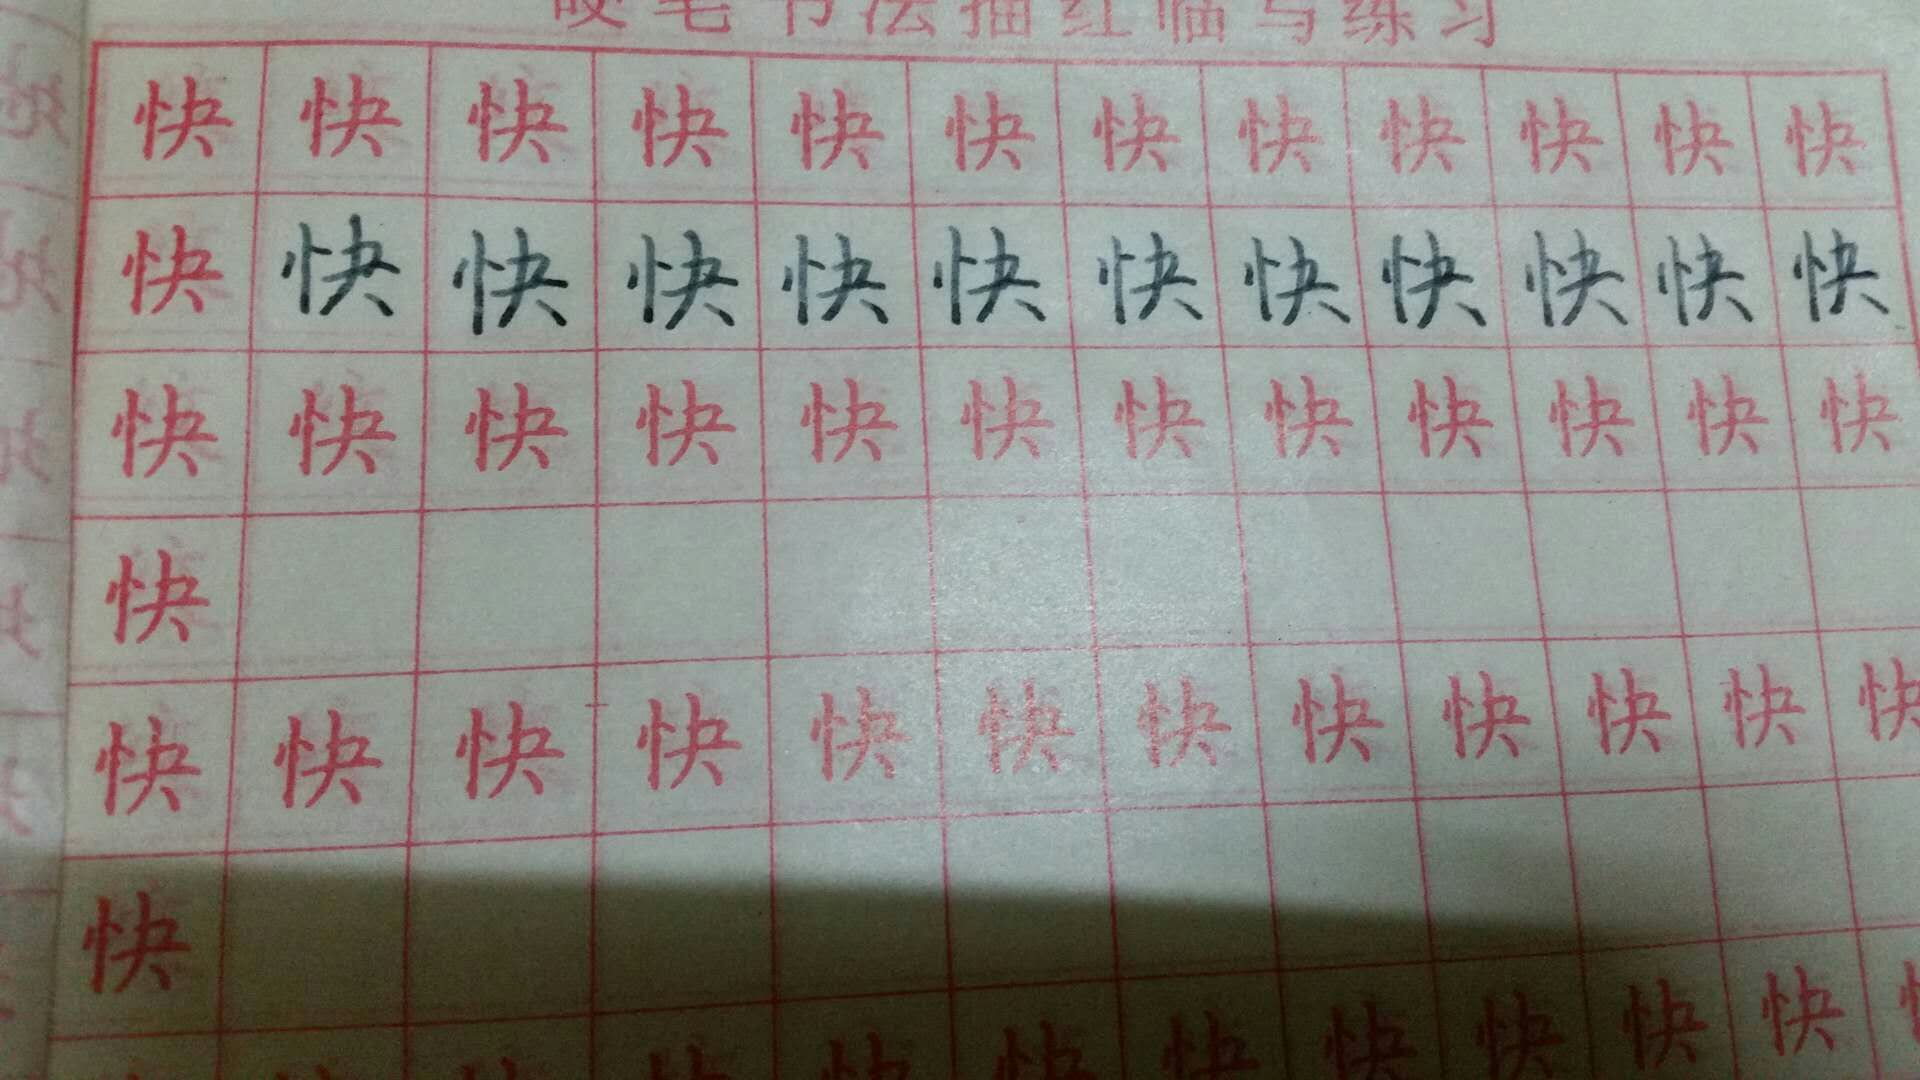 硬笔书法描红临写练习
快快快快快快快快快快快快
快快快快快快快快快快快快
快快快快快快快快快快快快
快
快快快快快快快快快快快快
快
快快快快快快快快快快快